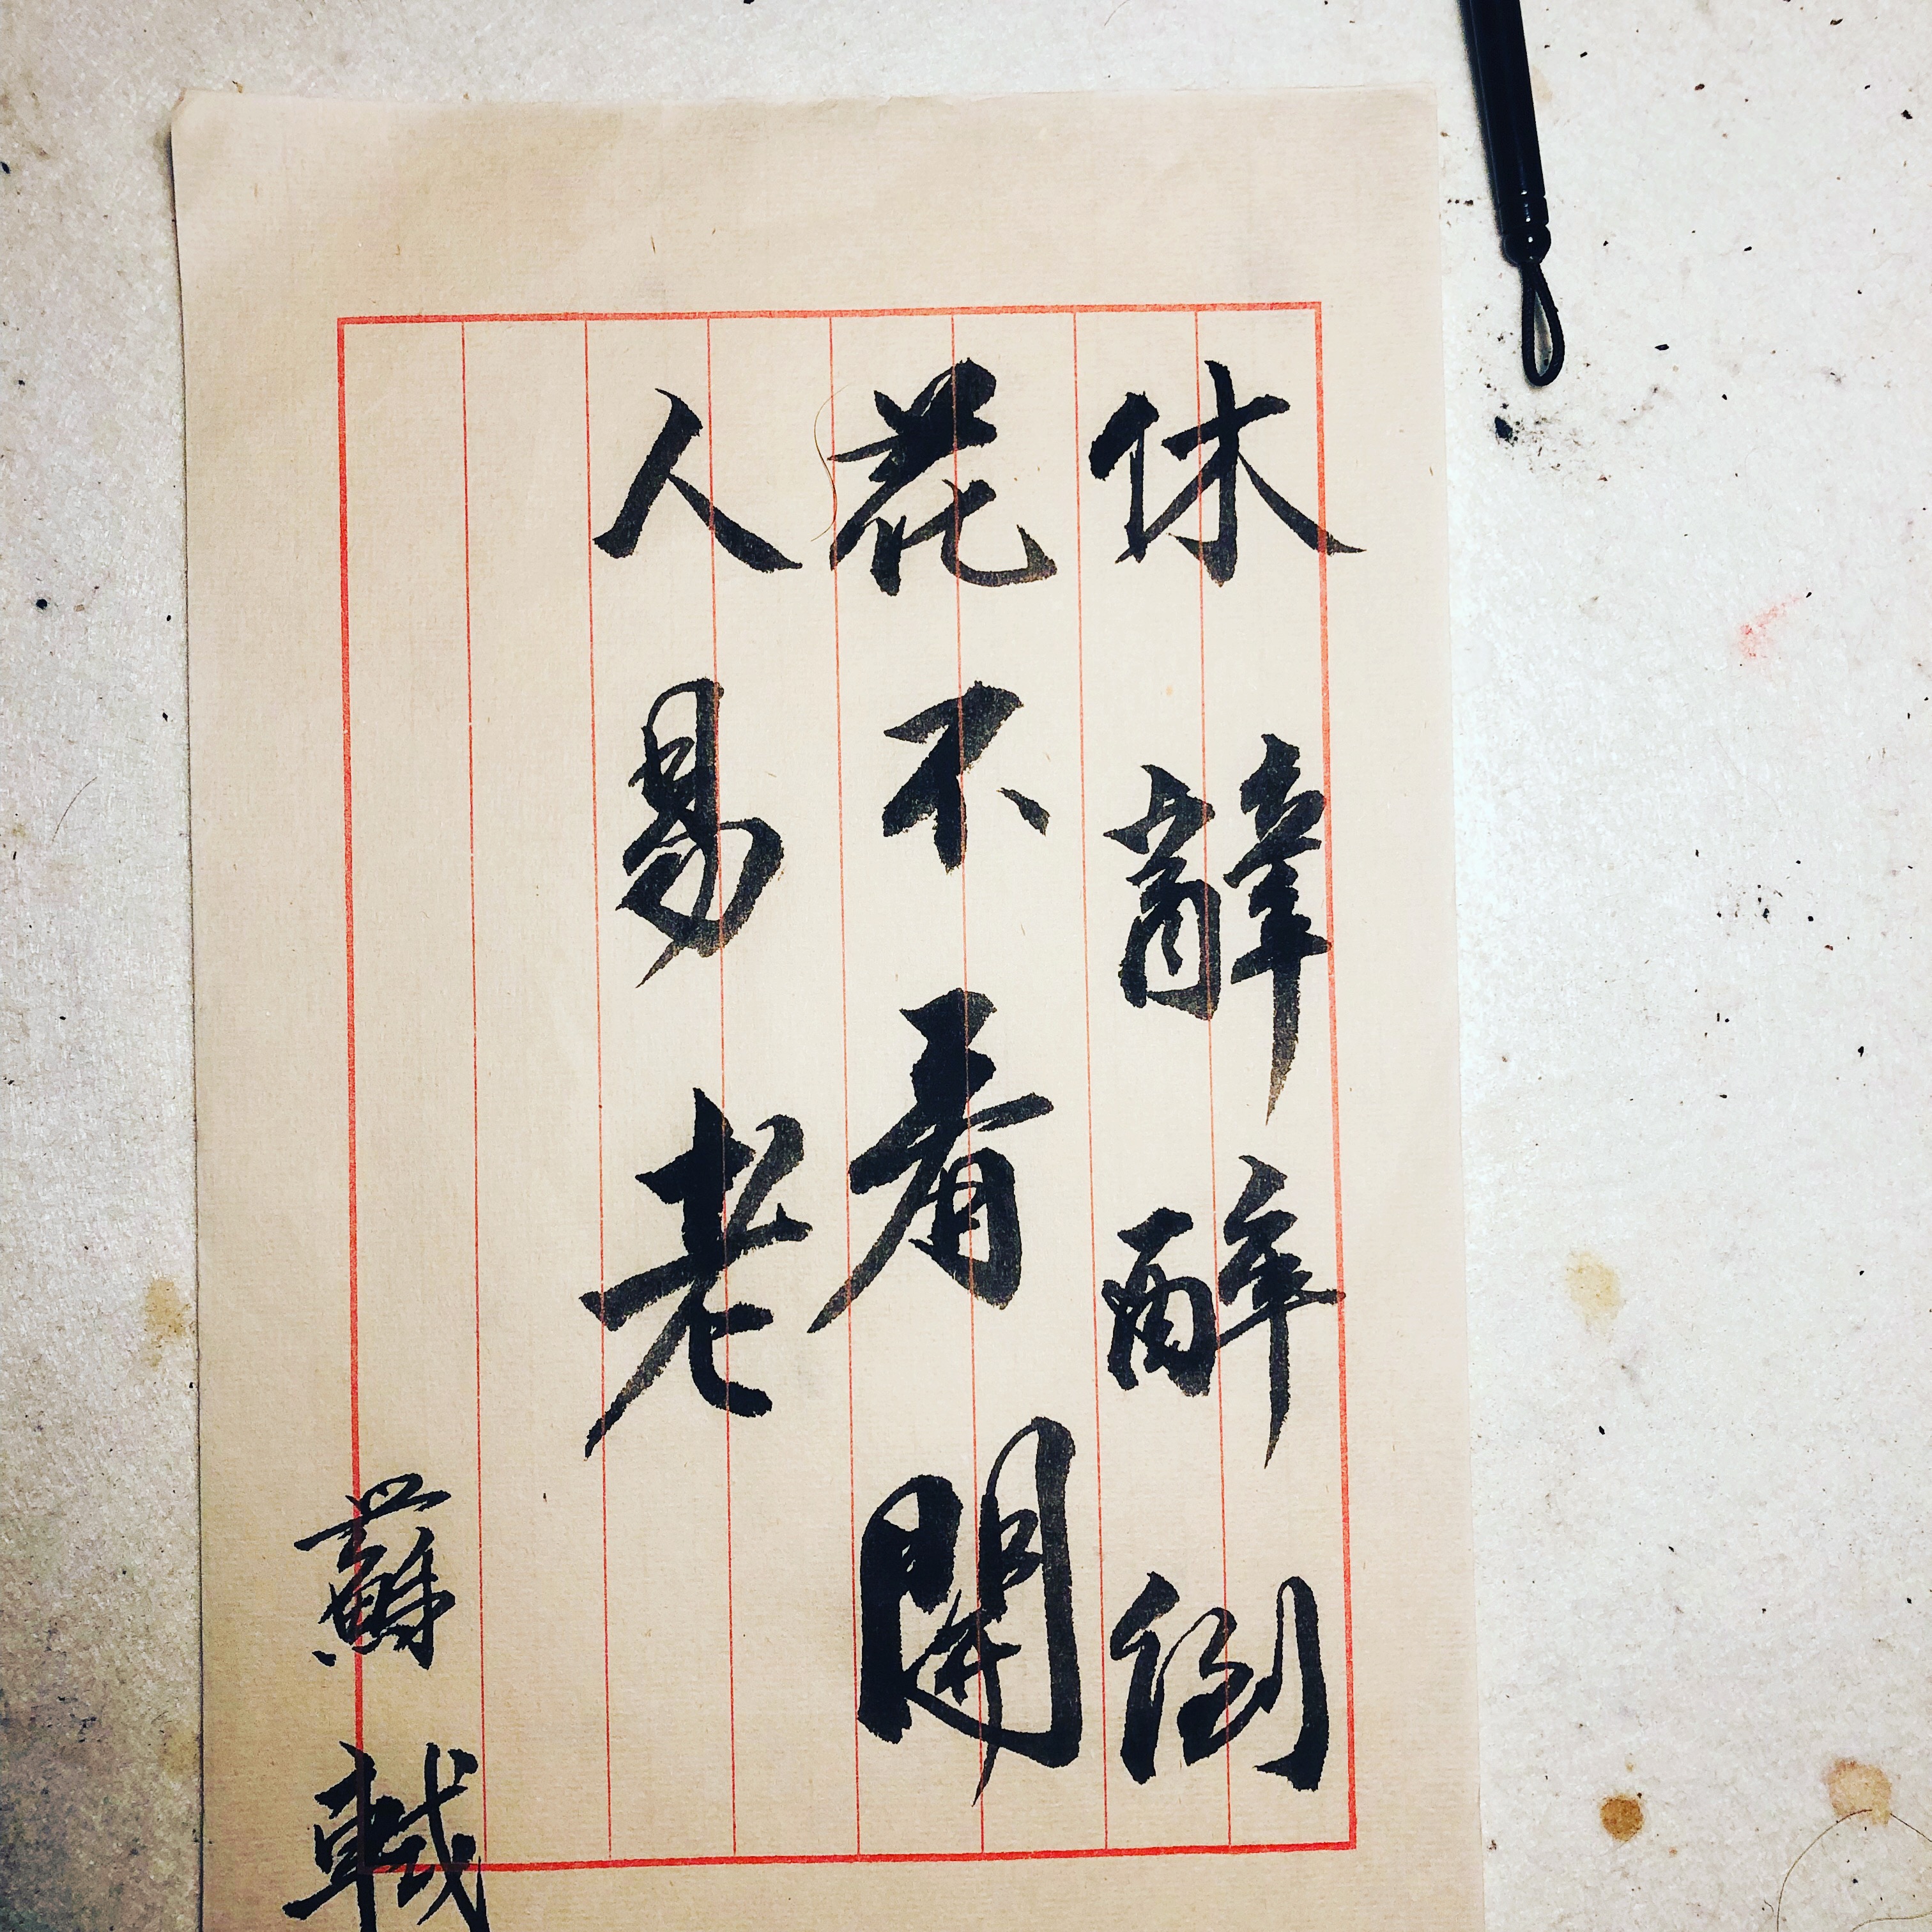 休辭醉倒
花不看開
人易老
蘇軾